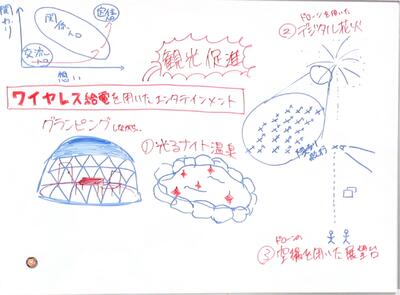 関わり
定住
関係人口
交流人口
想い
観光促進
ワイヤレス給電を用いたエンタテインメント
グランピングしながら、
①光るナイト温泉
ドローンを用いた
②デジタル花火
ドローンの
③空撮を用いた展望台